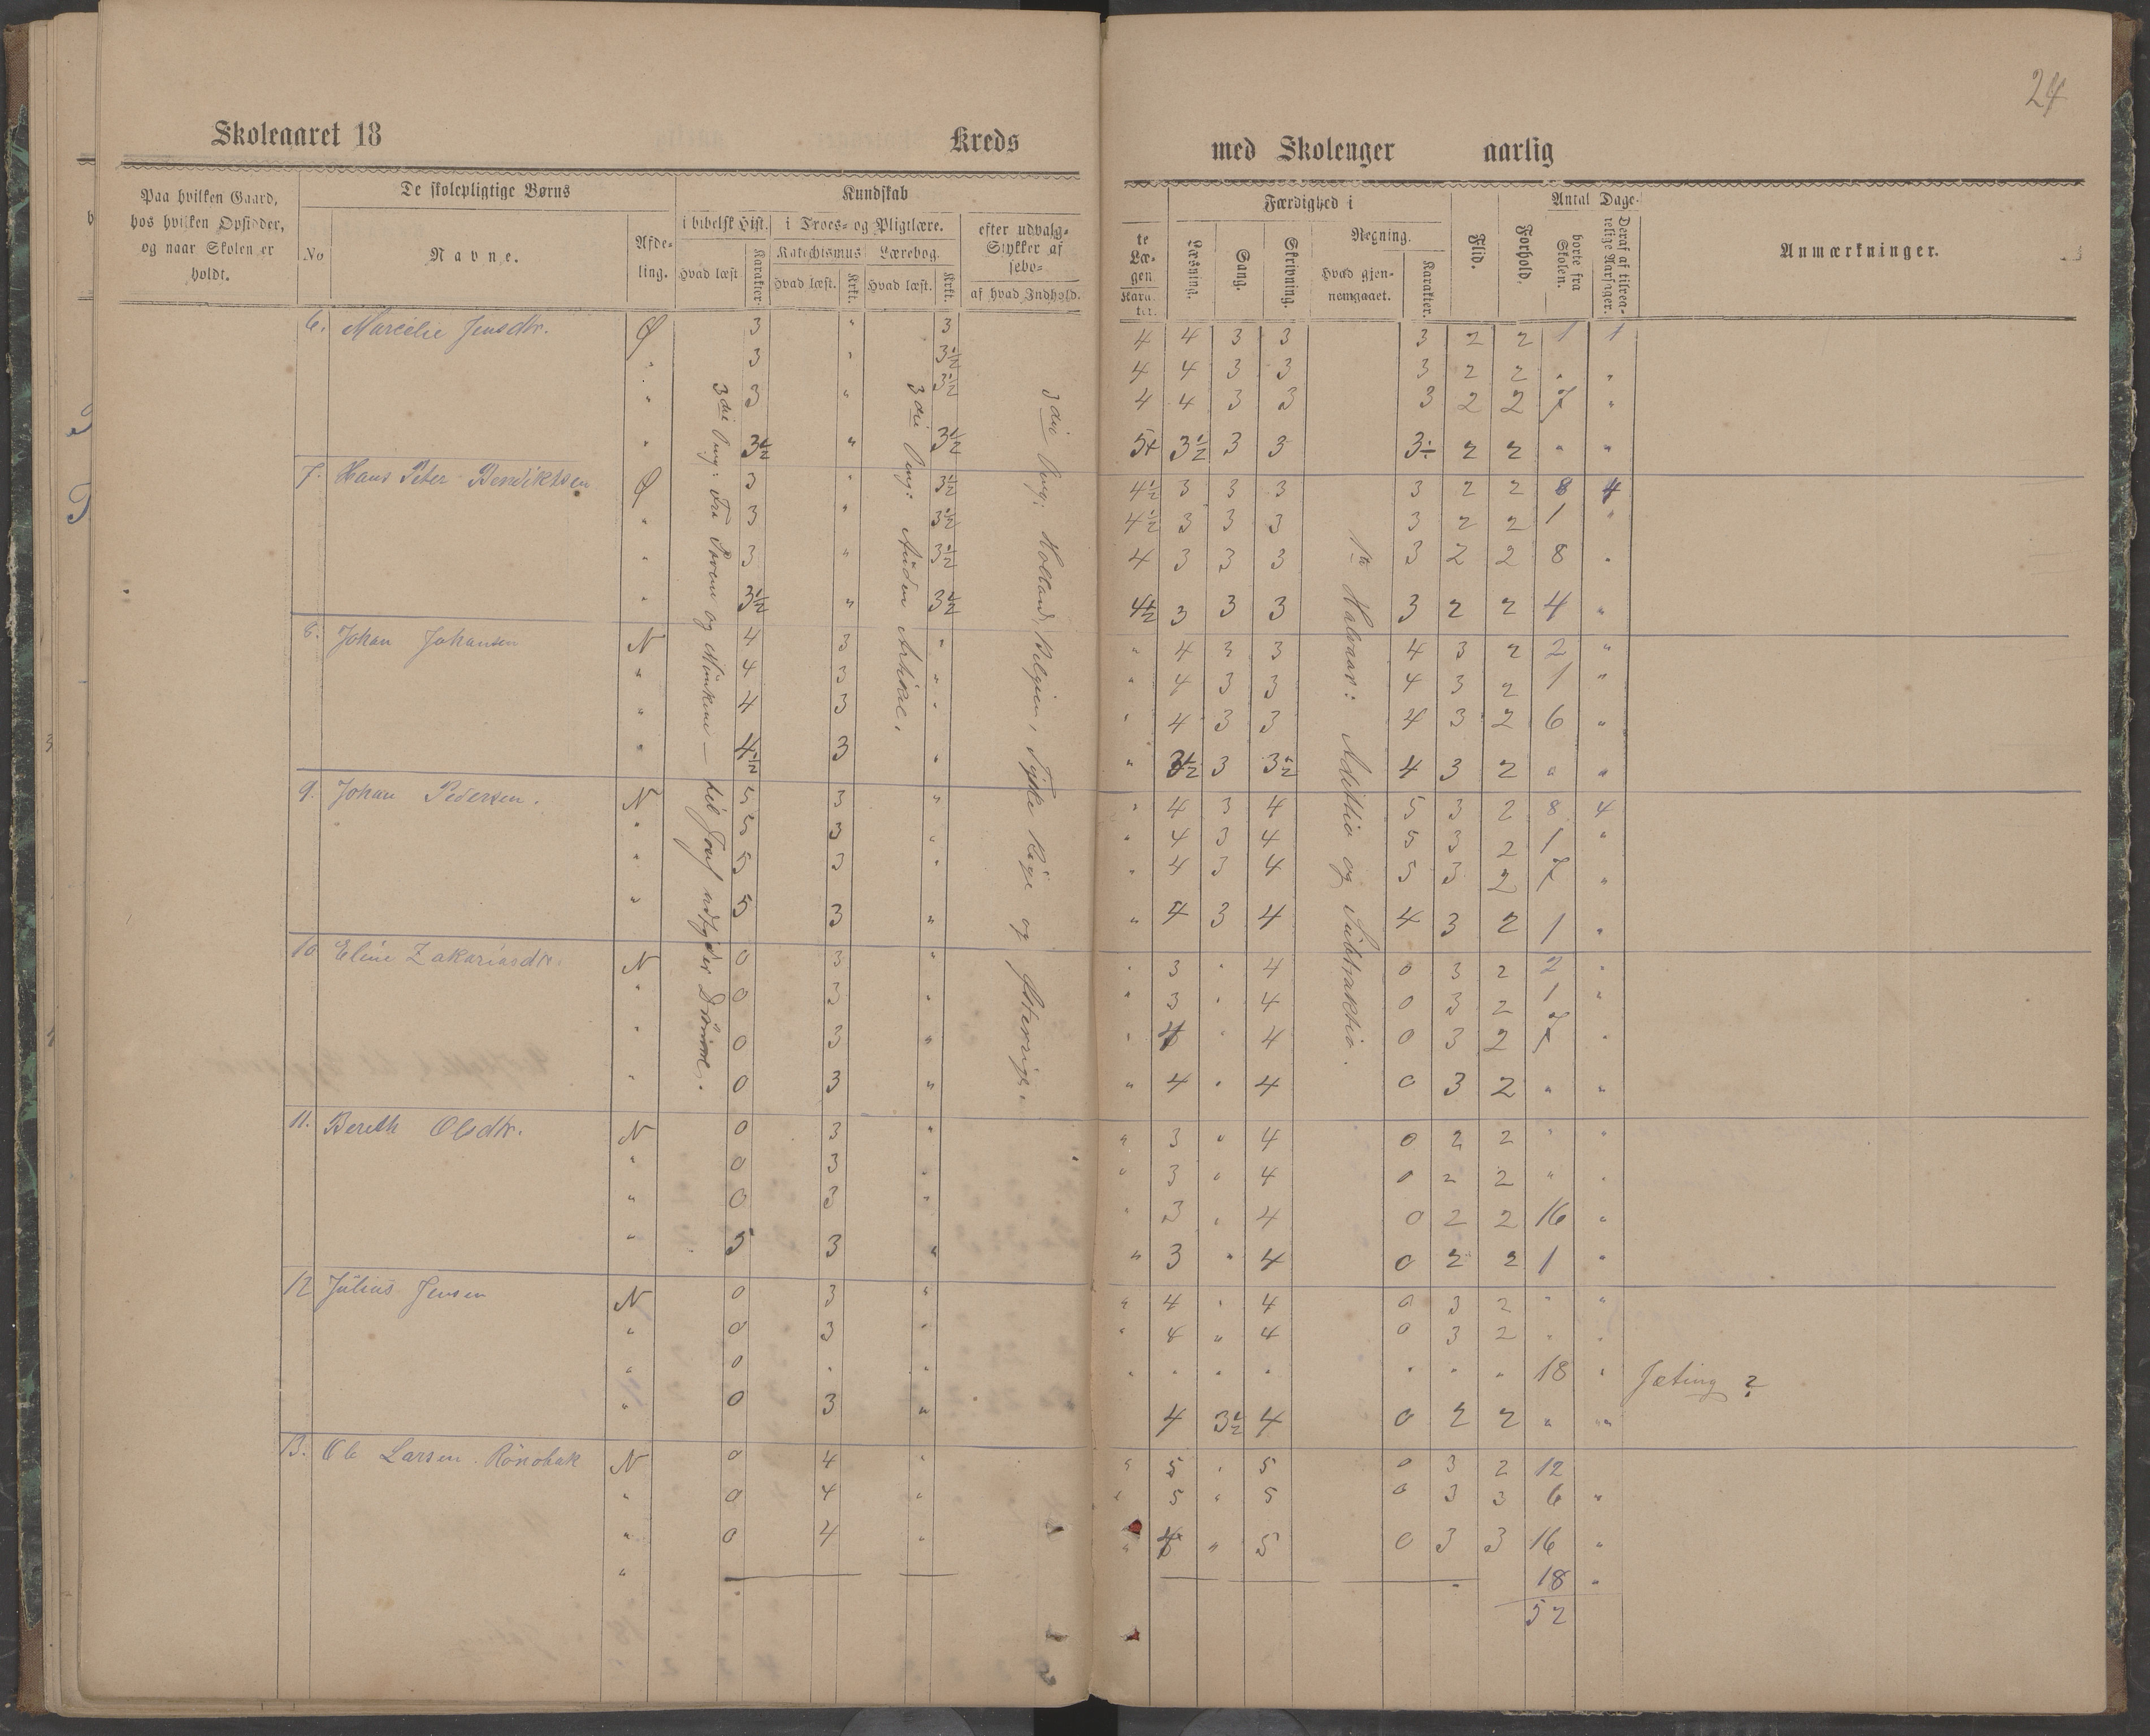 24
Skoleaaret 18 Kreds med Skoleuger aarlig
Paa hvilken Gaard, hos hvilken Opsidder, og naar Skolen er holdt.
De skolepligtige Børns
No
Navne.
Afdeling.
Kundskab
i bibelsk Hist.
Hvad læst
Karakter.
i Troes- og Pligtlære.
Katechismus
Hvad læst.
Krkt.
Lærebog.
Hvad læst.
Krkt.
efter udvalg-
Stykker af
sebo-
af hvad Indhold.
te
Læ-
gen
Karakter.
Færdighed i
Læsning.
Sang.
Skrivning.
Regning.
Hvad gjennemgaaet.
Karakter.
Flid.
Forhold.
Antal Dage.
borte fra Skolen.
Deraf af tilfredsstillende Aarsager.
Anmærkninger.
6. Marcelie Jensdtr. Ø 3 " 3 4 4 3 3 3 2 2 1 1
" 3 " 3½ 4 4 3 3 3 2 2 " "
" 3 " 3½ 4 4 3 3 3 2 2 7 "
" 3½ " 3½ 5+ 3½ 3 3 3÷ 2 2 " "
7. Hans Peter Bendiktsen Ø 3 " 3½ 4½ 3 3 3 3 2 2 8 4
" 3 " 3½ 4½ 3 3 3 3 2 2 1 "
" 3 " 3½ 4 3 3 3 3 2 2 8 "
" 3½ " 3½ 4½ 3 3 3 3 2 2 4 "
8. Johan Johansen N 4 3 " " 4 3 3 4 3 2 2 "
" 4 3 " " 4 3 3 4 3 2 1 "
" 4 3 " " 4 3 3 4 3 2 6 "
" 4½ 3 " " 3½ 3 3½ 4 3 2 " "
9. Johan Pedersen. N 5 3 " " 4 3 4 5 3 2 8 4
" 5 3 " " 4 3 4 5 3 2 1 "
" 5 3 " " 4 3 4 5 3 2 7 "
" 5 3 " " 4 3 4 4 3 2 1 "
10 Eline Zakariasdtr. N 0 3 " " 3 " 4 0 3 2 2 "
" 0 3 " " 3 " 4 0 3 2 1 "
" 0 3 " " 4 " 4 0 3 2 7 "
" 0 3 " " 4 " 4 0 3 2 " "
11. Bereth Olsdtr. N 0 3 " " 3 " 4 0 2 2 " "
" 0 3 " " 3 " 4 0 2 2 " "
" 0 3 " " 3 " 4 0 2 2 16 "
" 5 3 " " 3 " 4 0 2 2 1 "
12 Julius Jensen N 0 3 " " 4 " 4 0 3 2 " "
" 0 3 " " 4 " 4 0 3 2 " "
" 0 " " " " " " " " " 18 " Jæting ?
" 0 3 " 4 3½ 4 0 2 2 " "
13. Ole Larsen N 0 4 " " 5 " 5 0 3 2 12
" 0 4 " " 5 " 5 0 3 3 6 "
" 0 4 " " 4 " 5 0 3 3 16 "
" 18 "
52
3die Ovng: Fra Loven og Manken — til Josef udtyder Drømme.
3die Ovng: Anden Artikel.
3die Ovng: Holland, Belgien, Tyske Rige og Østerrige
1ste Halvaar: Addittio og Subtraktio.